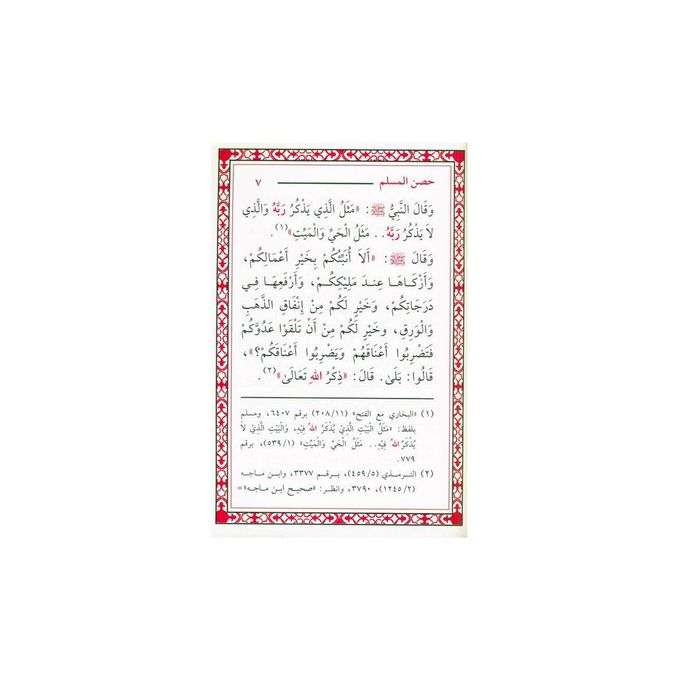 حصن المسلم ٧
وَقَالَ النَّبِيُّ ﷺ: «مَثَلُ الَّذِي يَذْكُرُ رَبَّهُ وَالَّذِي
لاَ يَذْكُرُ رَبَّهُ.. مَثَلُ الْحَيِّ وَالْمَيِّتِ»(١).
وَقَالَ ﷺ: «أَلاَ أُنَبِّئُكُمْ بِخَيْرِ أَعْمَالِكُمْ،
وَأَزْكَاهَا عِنْدَ مَلِيْكِكُمْ، وَأَرْفَعِهَا فِي
دَرَجَاتِكُمْ، وَخَيْرٍ لَكُمْ مِنْ إِنْفَاقِ الذَّهَبِ
وَالْوَرِقِ، وخَيْرٍ لَكُمْ مِنْ أَنْ تَلْقَوْا عَدُوَّكُمْ
فَتَضْرِبُوا أَعْنَاقَهُمْ وَيَضْرِبُوا أَعْنَاقَكُمْ؟»،
قَالُوا: بَلَىٰ. قَالَ: «ذِكْرُ اللهِ تَعَالَىٰ»(٢).
(١) «البخاري مع الفتح» (٢٠٨/١١) برقم ٦٤٠٧، ومسلم
بلفظ: «مَثَلُ الْبَيْتِ الَّذِي يُذْكَرُ اللهُ فِيْهِ، وَالْبَيْتِ الَّذِي لاَ
يُذْكَرُ اللهُ فِيْهِ.. مَثَلُ الْحَيِّ وَالْمَيِّتِ» (٥٣٩/١)، برقم
٧٧٩.
(٢) الترمذي (٤٥٩/٥)، برقم ٣٣٧٧، وابن ماجه
(١٢٤٥/٢)، ٣٧٩٠، وانظر: «صحيح ابن ماجه» =